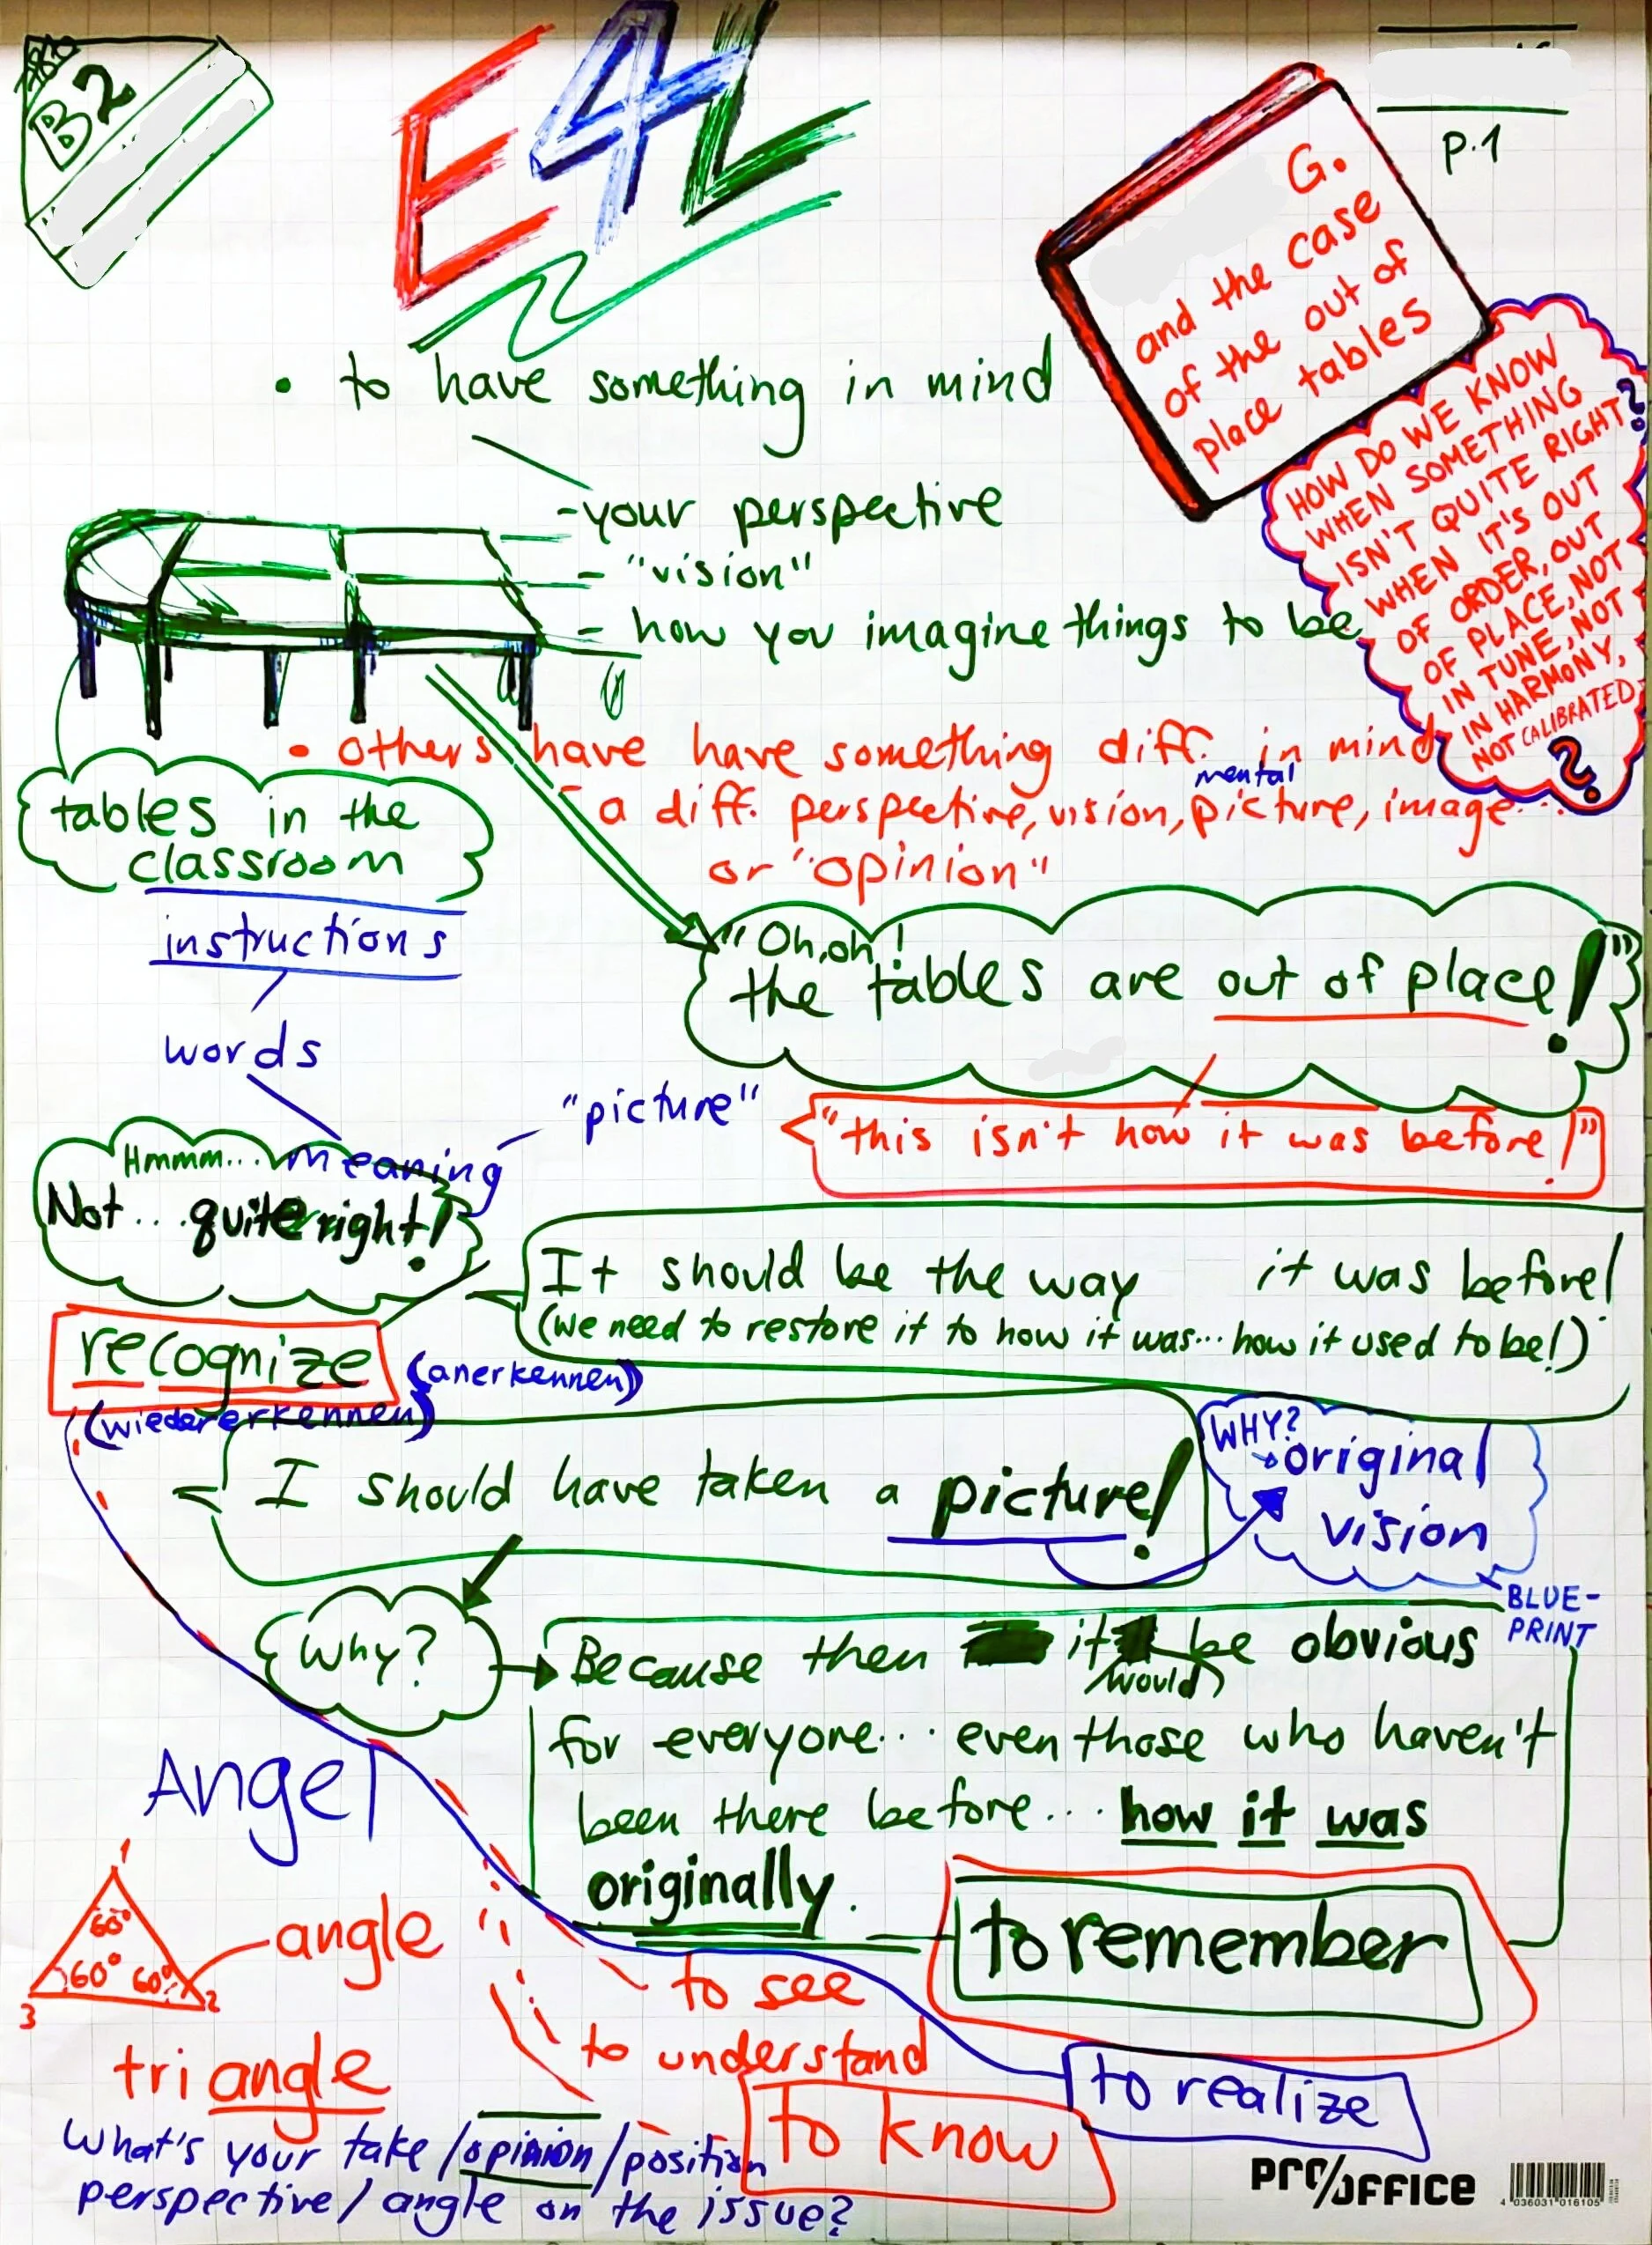 B2
E4L
p.1
G.
and the case
of the out of
place tables
HOW DO WE KNOW
WHEN SOMETHING
ISN'T QUITE RIGHT?
WHEN IT'S OUT
OF ORDER, OUT
OF PLACE, NOT
IN TUNE, NOT
IN HARMONY,
NOT CALIBRATED
?
• to have something in mind
- your perspective
- "vision"
- how you imagine things to be
• others have have something diff. in mind
- a diff. perspective, vision, mental picture, image...
or "opinion"
tables in the
classroom
instructions
words
meaning
"picture"
"Oh, oh!
the tables are out of place!"
"this isn't how it was before!"
Hmmm...
Not... quite right!
It should be the way it was before!
(we need to restore it to how it was... how it used to be!)
recognize
(anerkennen)
(wiedererkennen)
I should have taken a picture!
WHY?
original
vision
BLUE-
PRINT
Why?
Because then it would be obvious
for everyone... even those who haven't
been there before... how it was
originally.
to remember
Angel
1
60°
60° 60°
3 2
angle
triangle
to see
to understand
to know
to realize
What's your take / opinion / position
perspective / angle on the issue?
PRO/OFFICE
4 036031 016105